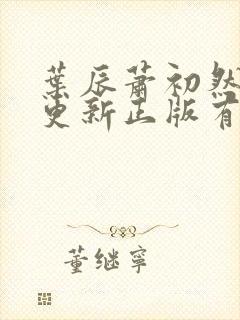 葉辰蕭初然
更新正版有
董继寧